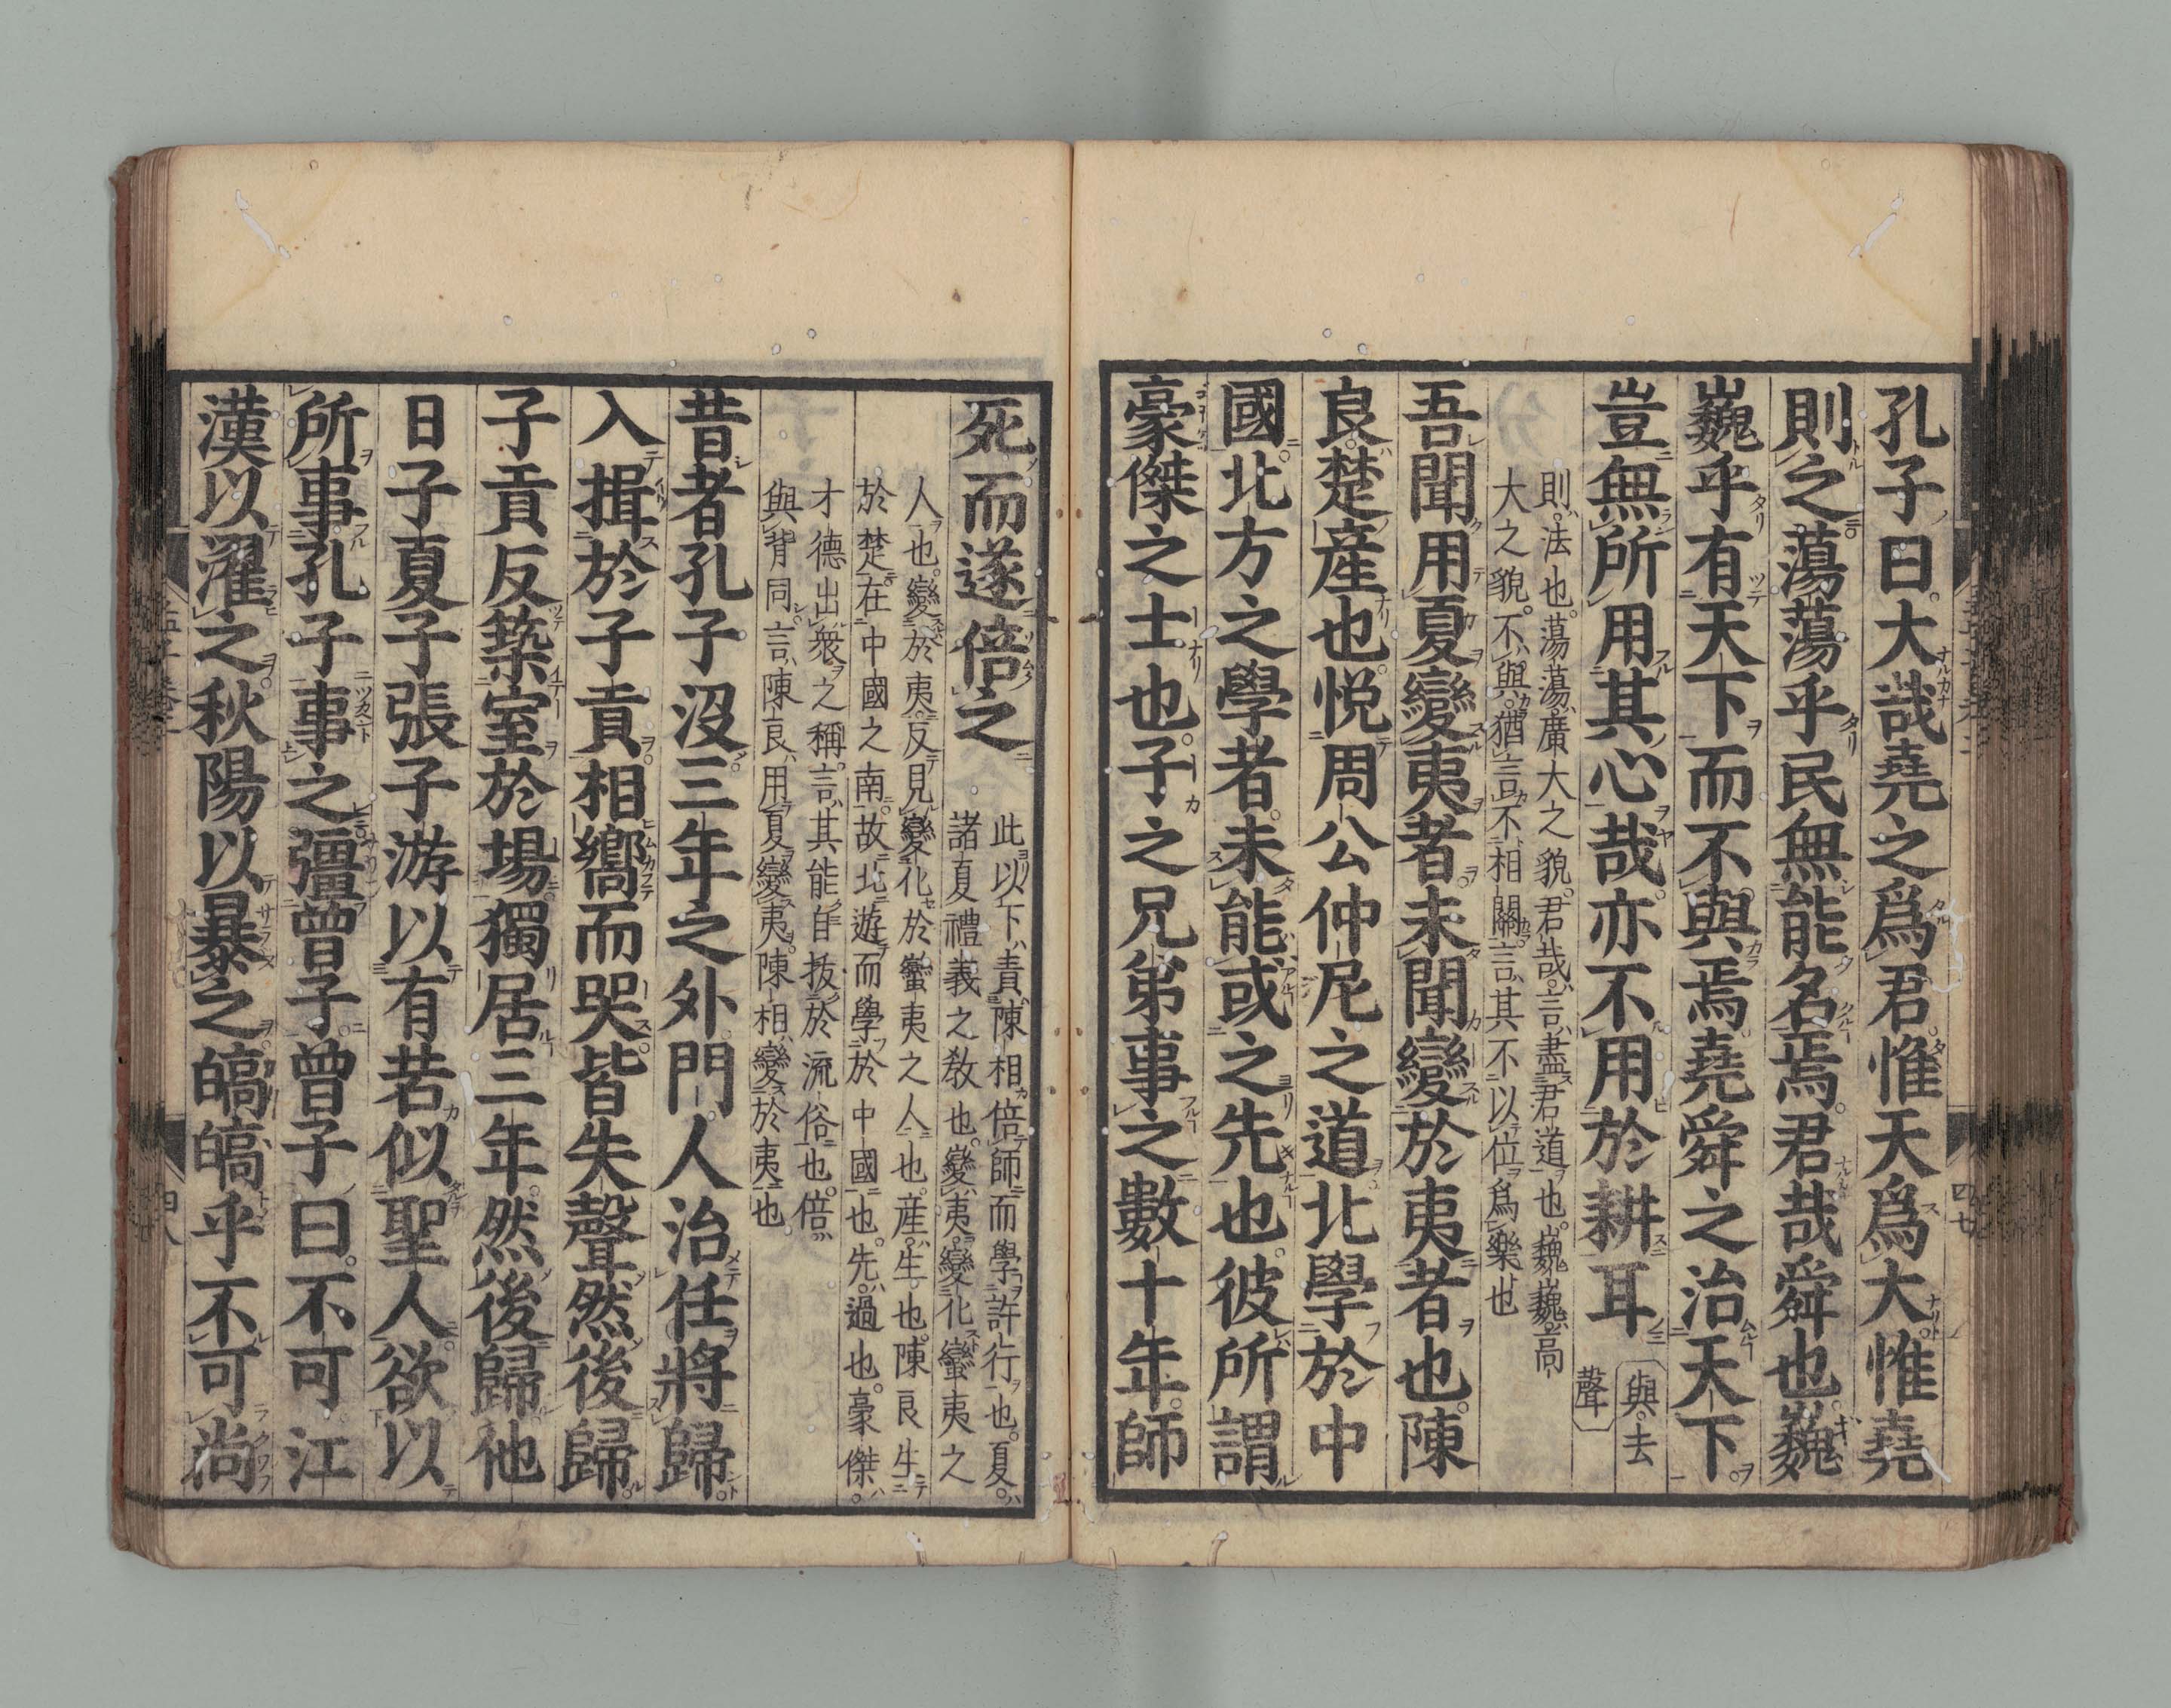 孔子曰大哉堯之爲君惟天爲大惟堯
則之蕩蕩乎民無能名焉君哉舜也巍
巍乎有天下而不與焉堯舜之治天下
豈無所用其心哉亦不用於耕耳
與去
聲
則法也蕩蕩廣大之貌君哉言盡君道也巍巍高
大之貌不與猶言不相關言其不以位爲樂也
吾聞用夏變夷者未聞變於夷者也陳
良楚産也悦周公仲尼之道北學於中
國北方之學者未能或之先也彼所謂
豪傑之士也子之兄弟事之數十年師
死而遂倍之
此以下責陳相倍師而學許行也夏
諸夏禮義之教也變夷變化蠻夷之
人也變於夷反見變化於蠻夷之人也産生也陳良生
於楚在中國之南故北遊而學於中國也先過也豪傑
才德出衆之稱言其能自拔於流俗也倍
與背同言陳良用夏變夷陳相變於夷也
昔者孔子沒三年之外門人治任將歸
入揖於子貢相嚮而哭皆失聲然後歸
子貢反築室於場獨居三年然後歸他
日子夏子張子游以有若似聖人欲以
所事孔子事之彊曾子曾子曰不可江
漢以濯之秋陽以暴之皜皜乎不可尚